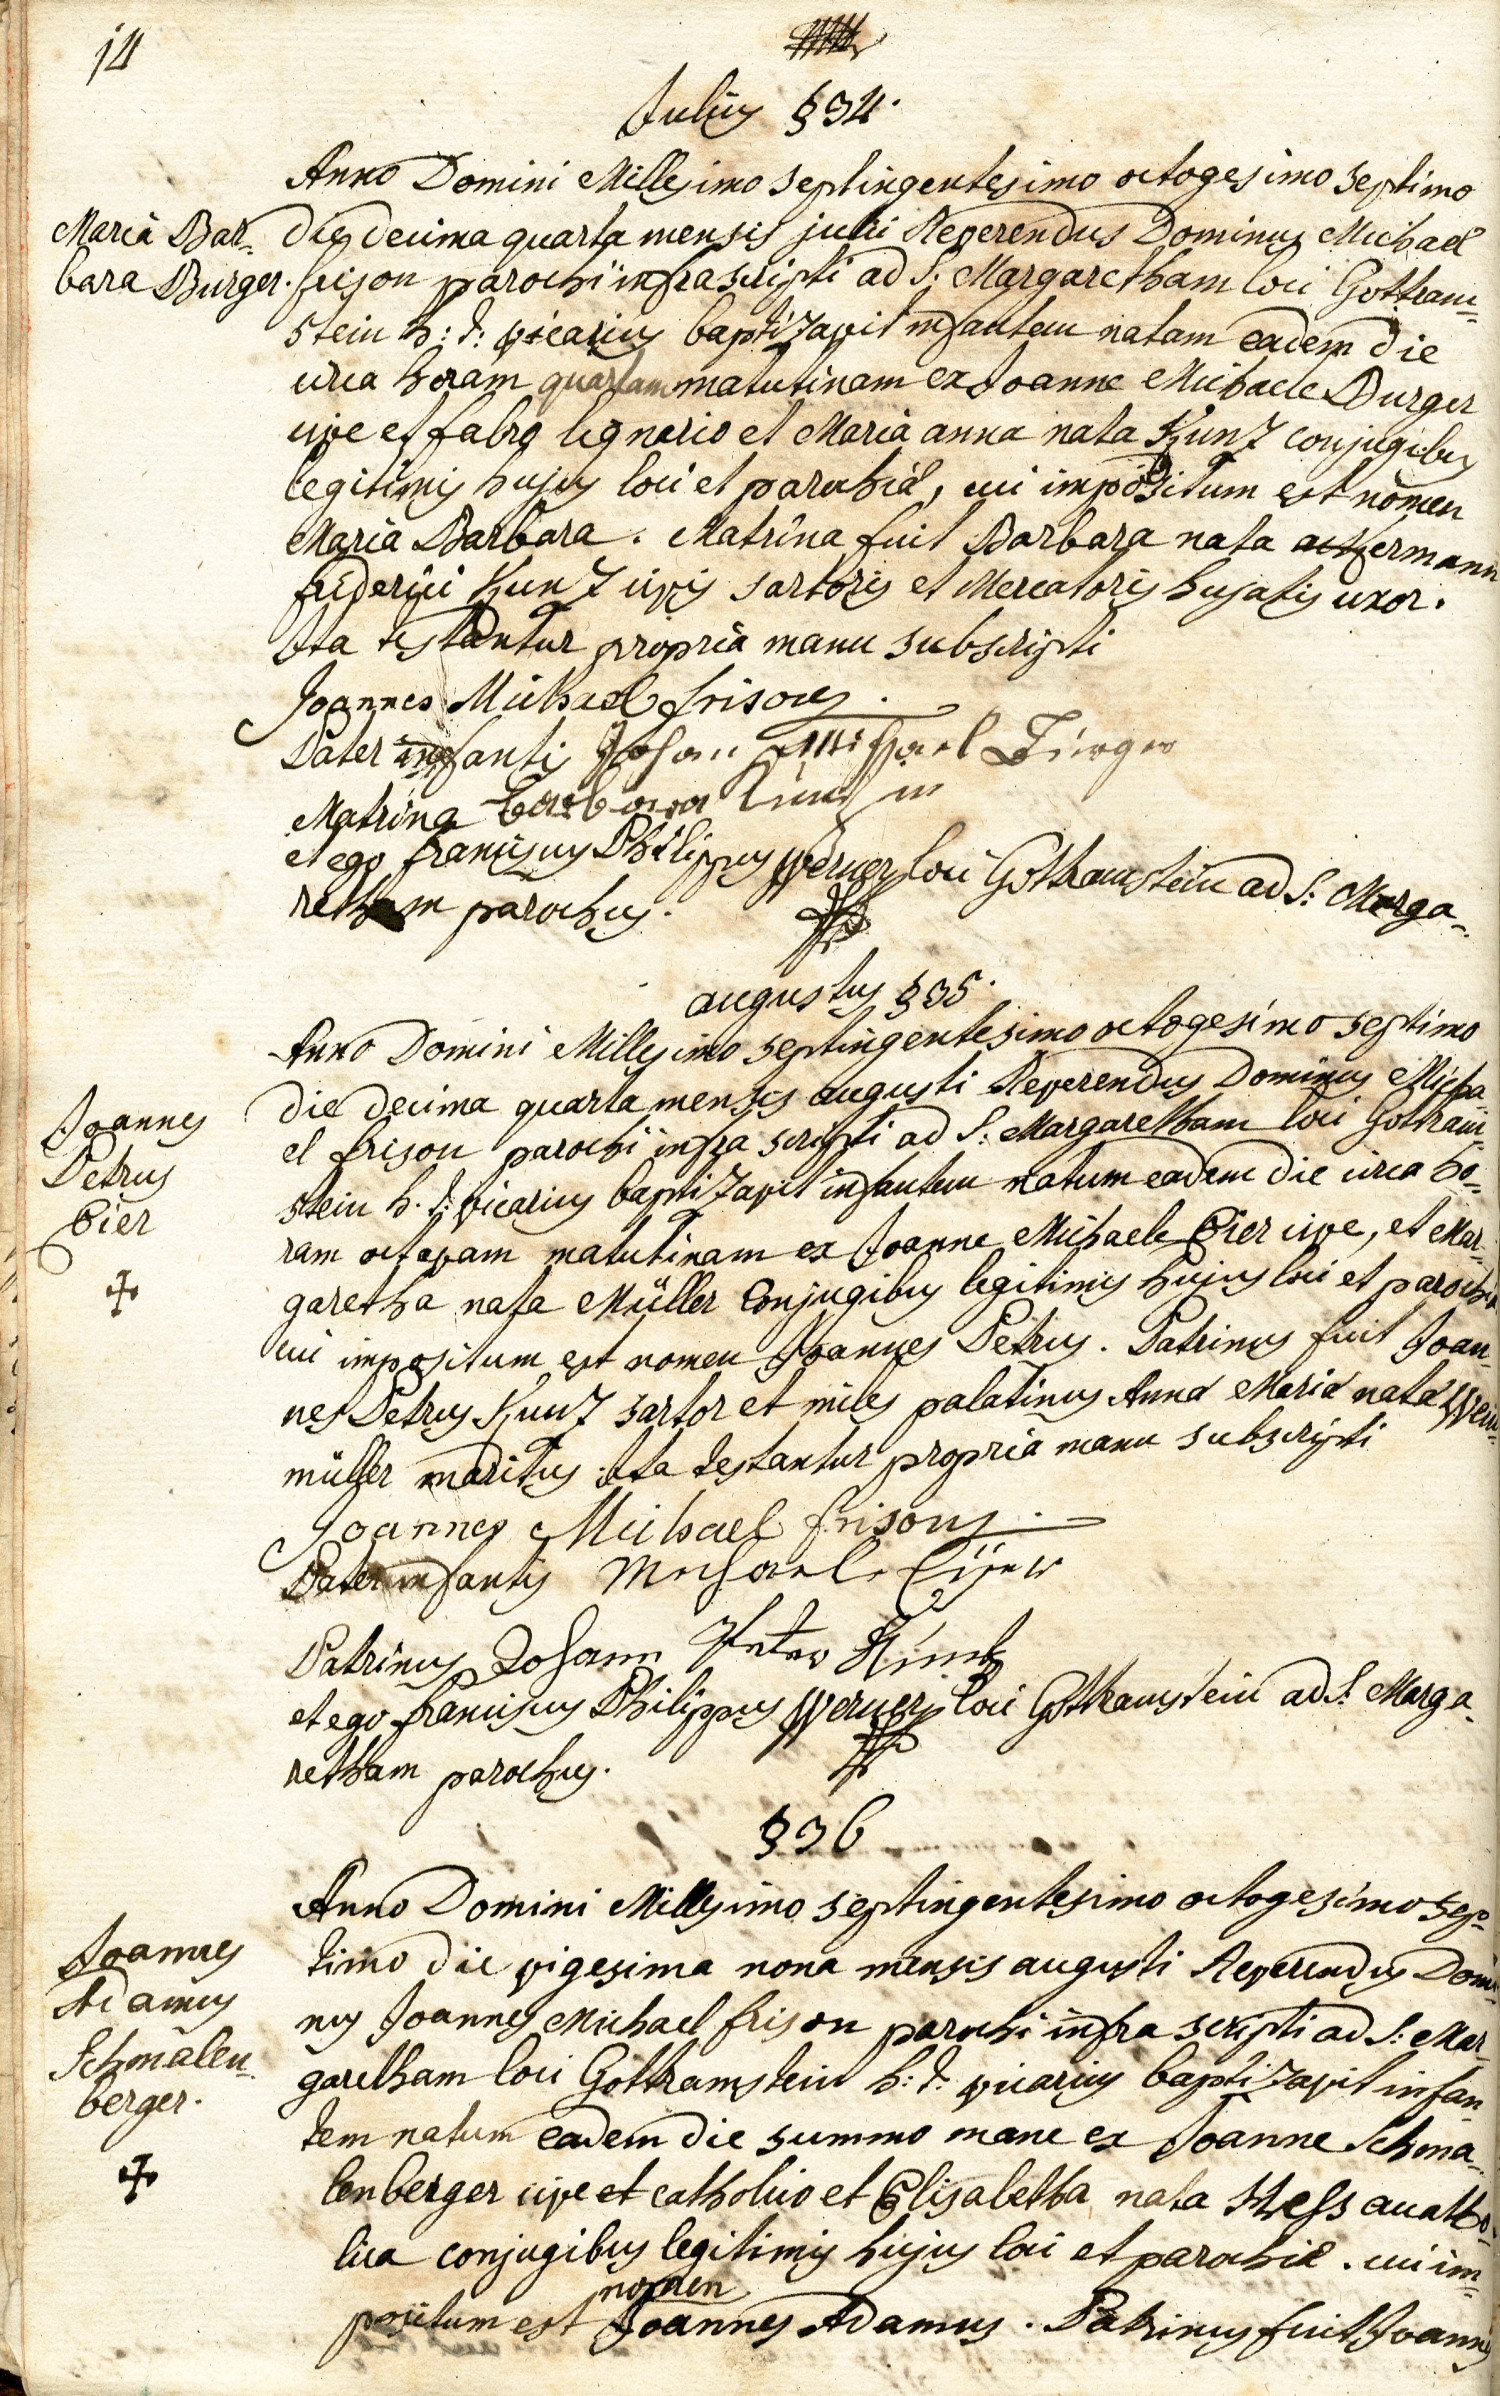 14
Julius § 34.
Anno Domini Millesimo septingentesimo octogesimo septimo
Maria Bar-
bara Burger.
die decima quarta mensis julii Reverendus Dominus Michael
frison parochi infrascripti ad S: Margaretham loci Gottram-
stein h: t: vicarius baptizavit infantem natam eadem die
circa horam quartam matutinam ex Joanne Michaele Burger
cive et fabro lignario et Maria anna nata Kunz conjugibus
legitimis hujus loci et parochiæ, cui impositum est nomen
Maria Barbara. Matrina fuit Barbara nata ackermann
friderici Kunz civis sartoris et Mercatoris hujatis uxor.
Ita testantur propria manu subscripti
Joannes Michael frison
Pater infantis Johan Michael Burger
Matrina Barbara Kuntzin
et ego franciscus Philippus Werner loci Gottramstein ad S: Marga-
retham parochus.
augustus § 35.
Anno Domini Millesimo septingentesimo octogesimo septimo
Joannes
Petrus
Cier
die decima quarta mensis augusti Reverendus Dominus Micha-
el frison parochi infra scripti ad S: Margaretham loci Gottram-
stein h. t: vicarius baptizavit infantem natum eadem die circa ho-
ram octavam matutinam ex Joanne Michaele Cier cive, et Mar-
garetha nata Müller Conjugibus legitimis hujus loci et parochiæ
cui impositum est nomen Joannes Petrus. Patrinus fuit Joan-
nes Petrus Kunz sartor et miles palatinus Annæ Mariæ natæ Wein-
müller maritus. Ita testantur propria manu subscripti
Joannes Michael frison
Pater infantis Michael
Patrinus Johann Peter Kuntz
et ego franciscus Philippus Werner loci Gottramstein ad S: Marga-
retham parochus.
§ 36
Anno Domini Millesimo septingentesimo octogesimo sep-
Joannes
Adamus
Schmalen-
berger.
timo die vigesima nona mensis augusti Reverendus Domi-
nus Joannes Michael frison parochi infra scripti ad S: Mar-
garetham loci Gottramstein h: t: vicarius baptizavit infan-
tem natum eadem die summo mane ex Joanne Schma-
lenberger cive et catholico et Elisabetha nata Hess acatho-
lica conjugibus legitimis hujus loci et parochiæ. cui im-
nomen
positum est Joannes Adamus. Patrinus fuit Joannes